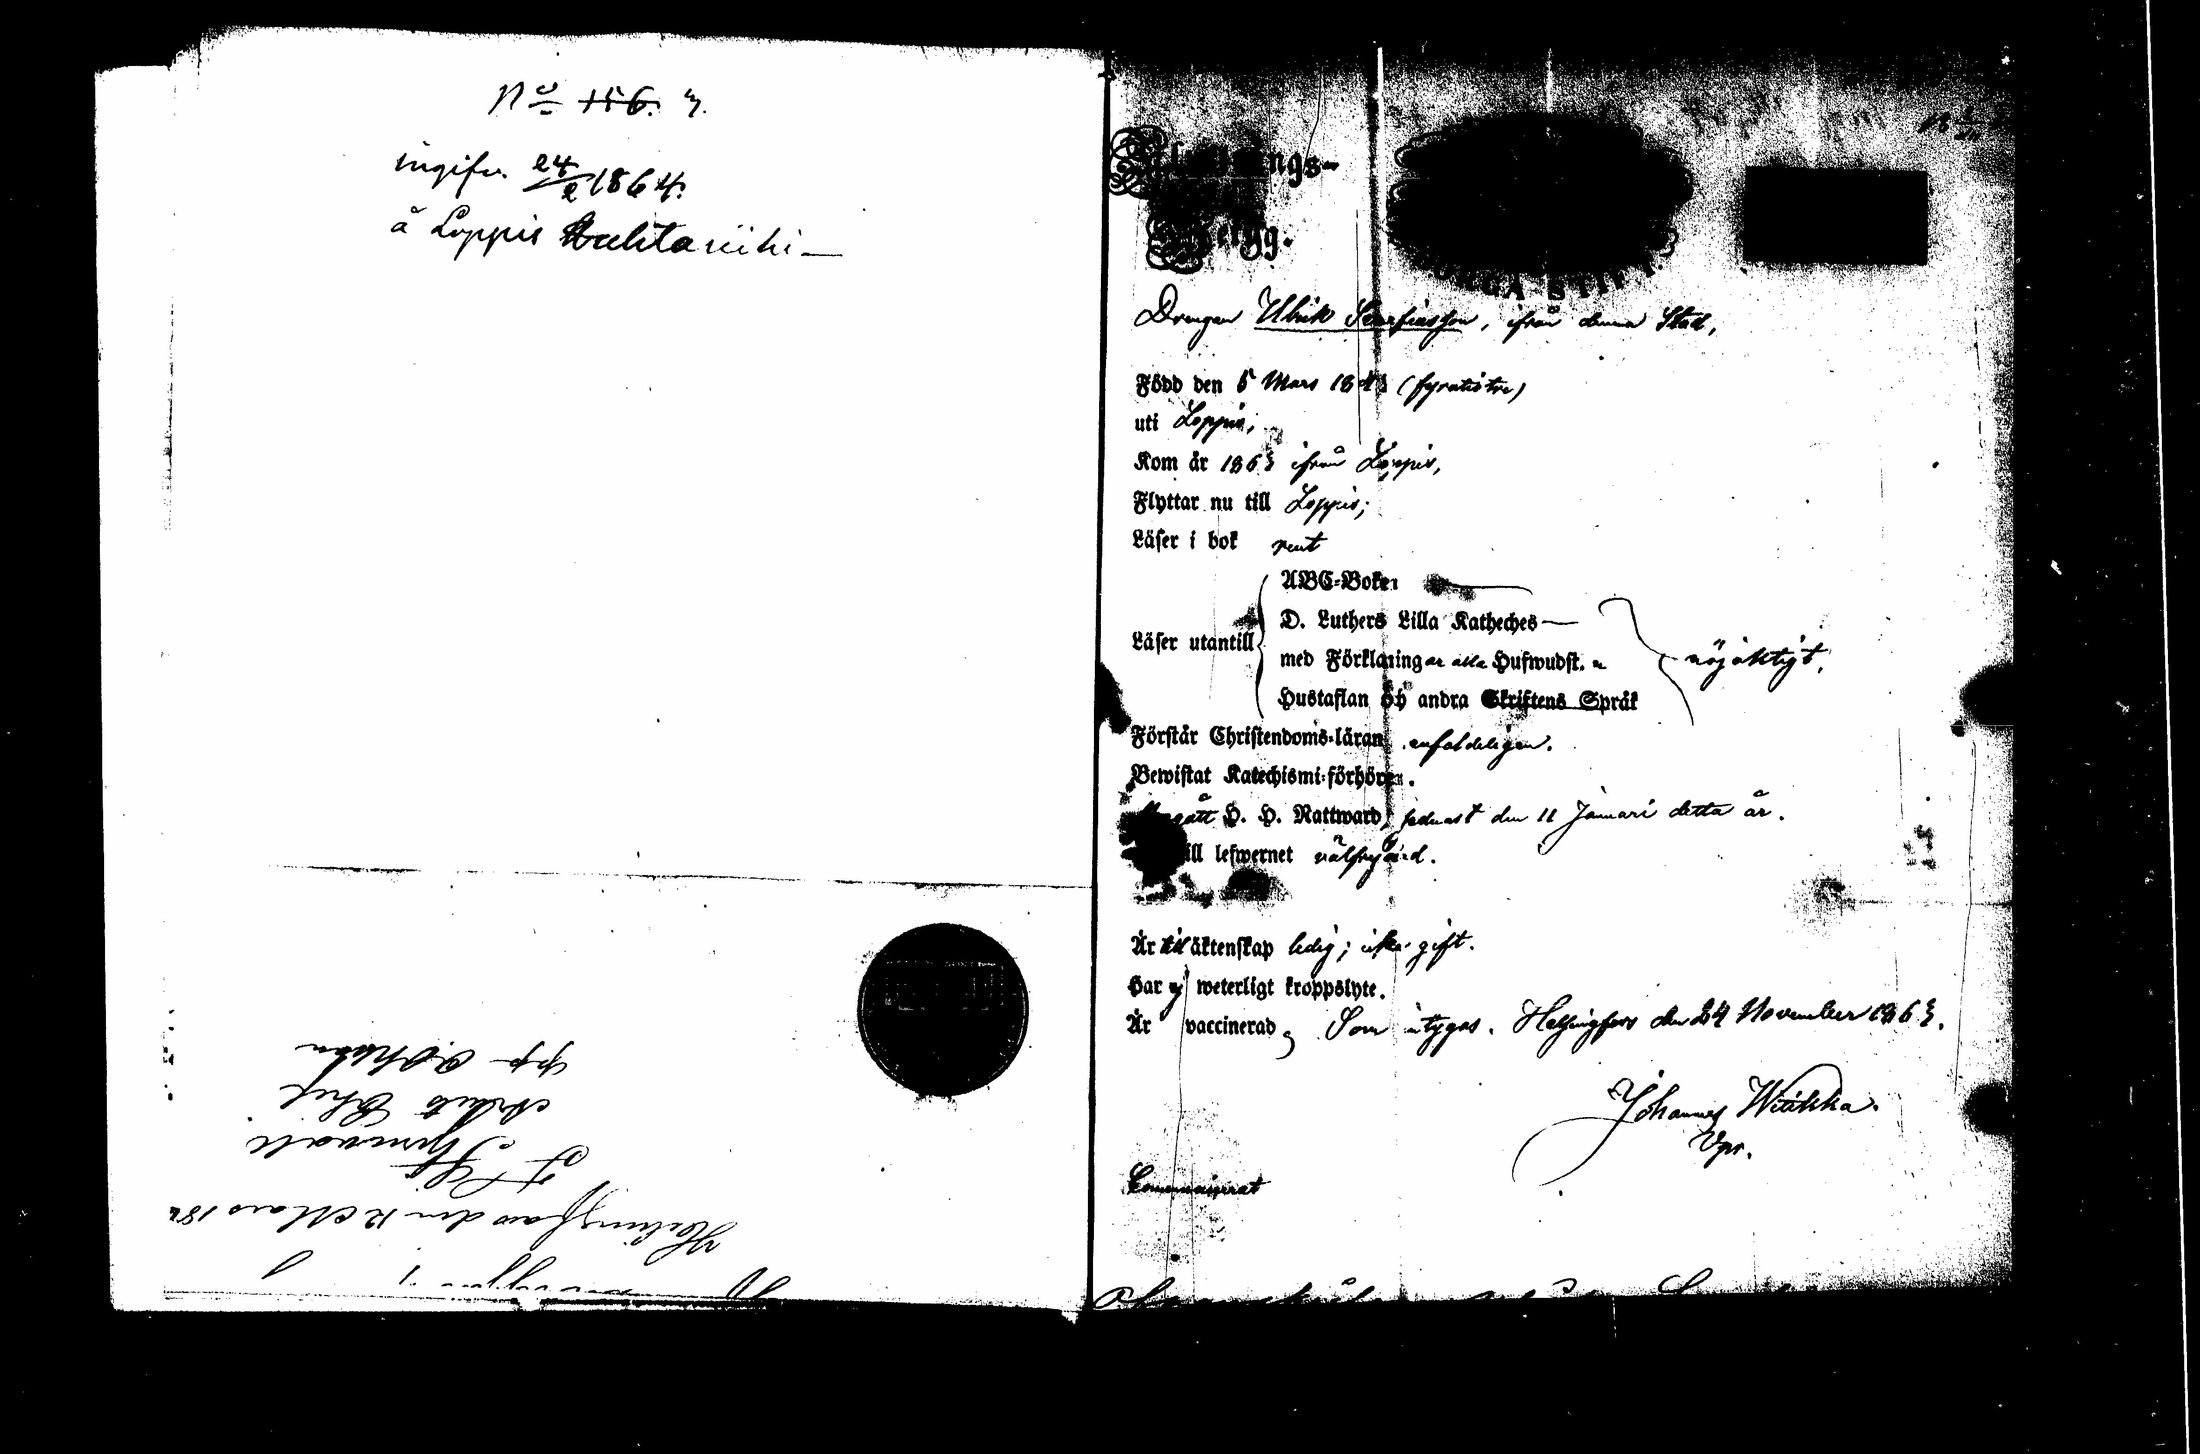 No 156. 3.
ingifv. 24/2 1864.
å Loppis Kuhtariihi
Flyttnings-
Betyg.
BORGÅ STIFT.
Drengen Ulrik Serafiasson, ifrån denna Stad,
Född den 5 Mars 1843 (fyratiotre)
uti Loppis;
Kom år 1863 ifrån Loppis,
Flyttar nu till Loppis;
Läser i bok rent
Läser utantill
ABC-Boken
D. Luthers Lilla Katheches
med Förklaringar alla Hufwudst.
Hustaflan och andra Skriftens Språk
nöjaktigt.
Förstår Christendoms-läran enfaldeligen.
Bewistat Katechismi-förhören.
Begått H. H. Nattward, sednast den 11 Januari detta år.
till lefwernet välfrejdad.
Är till äktenskap ledig; icke gift.
Har ej weterligt kroppslyte.
Är vaccinerad; Som intygas. Helsingfors den 24 November 1863.
Johannes Witikka.
Vpr.
Communicerat
Helsingfors den 12 Mars 18